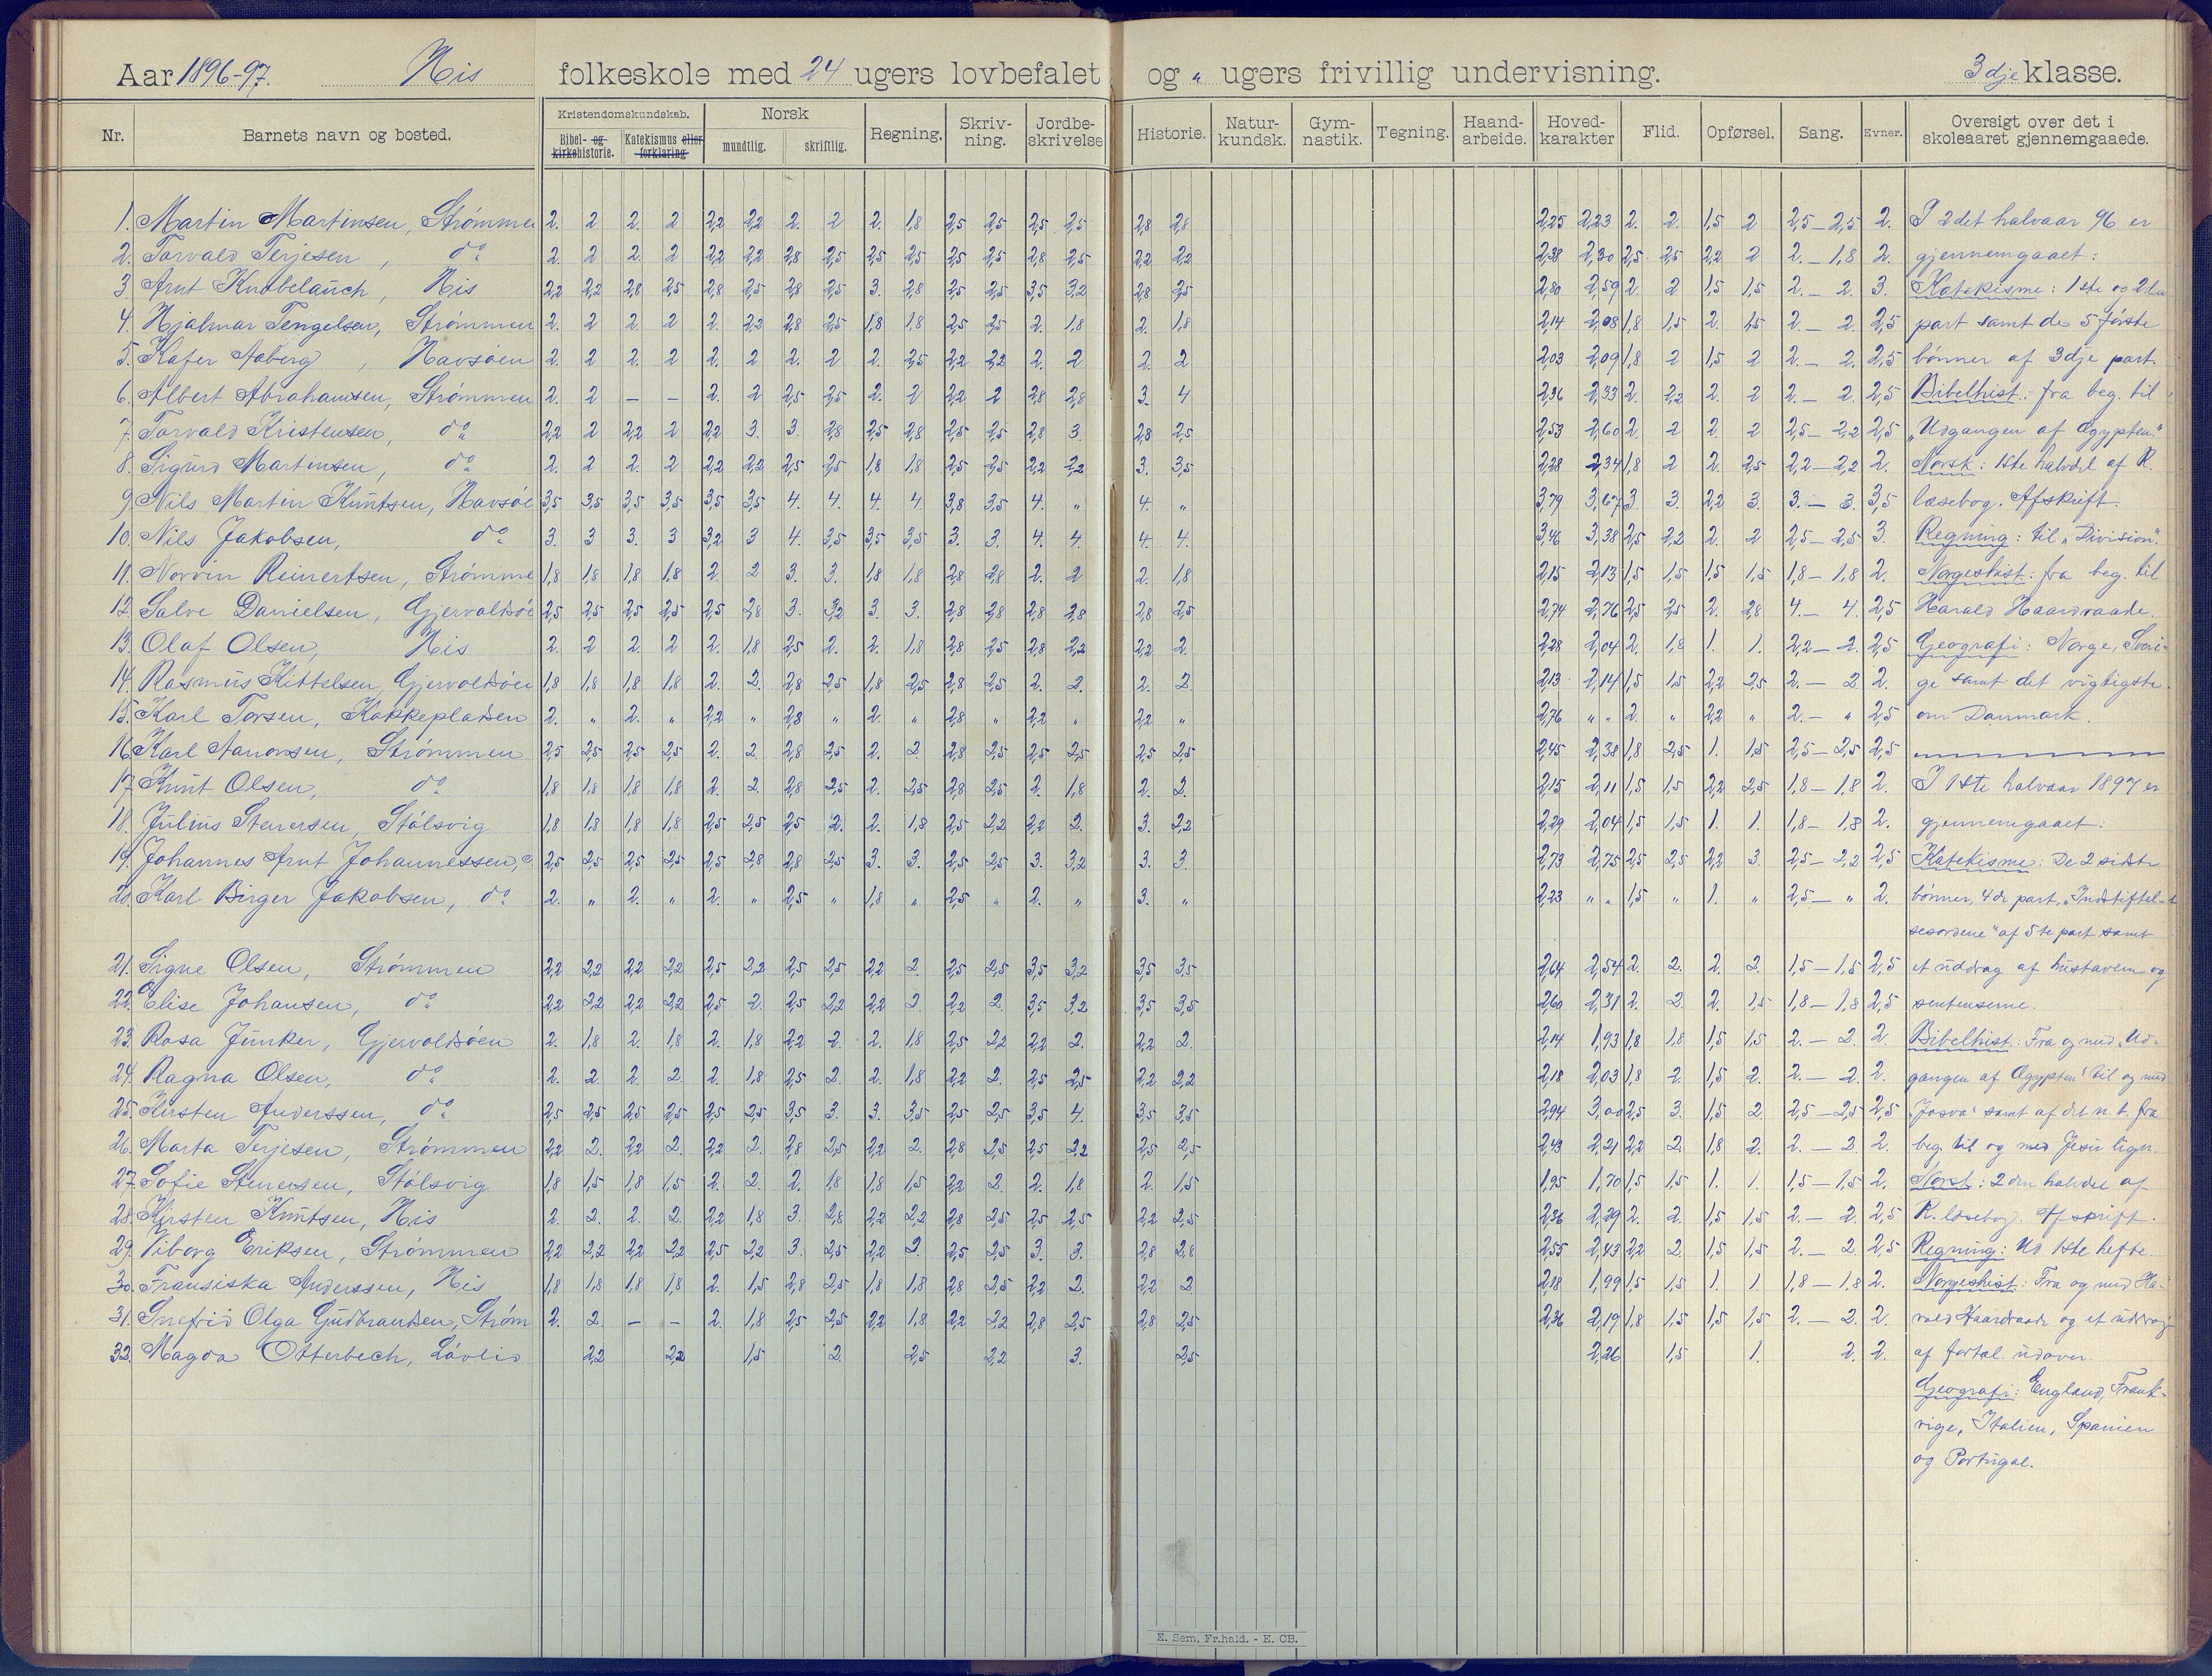 Aar 1896-97. His folkeskole med 24 ugers lovbefalet og " ugers frivillig undervisning. 3dje klasse.
Nr. Barnets navn og bosted. Kristendomskundskab. Norsk Regning. Skriv-ning. Jordbe-skrivelse Historie. Natur-kundsk. Gym-nastik. Tegning. Haand-arbeide. Hoved-karakter Flid. Opførsel. Sang. Evner. Oversigt over det i skoleaaret gjennemgaaede.
Bibel- og kirkehistorie. Katekismus eller forklaring mundtlig. skriftlig.
1. Martin Martinsen, Strømme 2. 2 2. 2 2,2 2,2 2. 2 2. 1,8 2,5 2,5 2,5 2,5 2,8 2,8 2,25 2,23 2. 2. 1,5 2 2,5 – 2,5 2. I 2det halvaar 96 er
2. Torvald Terjesen, do 2. 2 2. 2 2,2 2,2 2,8 2,5 2,5 2,5 2,5 2,5 2,8 2,5 2,2 2,2 2,38 2,30 2,5 2,5 2,2 2 2. – 1,8 2. gjennemgaaet:
3. Arnt Knobelauch, His 2,2 2,2 2,8 2,5 2,8 2,5 2,8 2,5 3. 2,8 2,5 2,5 3,5 3,2 2,8 2,5 2,80 2,59 2. 2 1,5 1,5 2. – 2. 3. Katekisme: 1ste og 2den
4. Hjalmar Tengelsen, Strømmen 2. 2 2. 2 2. 2,2 2,8 2,5 1,8 1,8 2,5 2,5 2. 1,8 2. 1,8 2,14 2,08 1,8 1,5 2. 2,5 2. – 2. 2,5 part samt de 5 første
5. Kafer Aaberg, Havsøen 2. 2 2. 2 2. 2 2. 2 2. 2,5 2,2 2,2 2. 2 2. 2 2,03 2,09 1,8 2 1,5 2 2. – 2. 2,5 bønner af 3dje part.
6. Albert Abrahamsen, Strømmen 2. 2 – – 2. 2 2,5 2,5 2. 2 2,2 2 2,8 2,8 3. 4 2,36 2,33 2. 2,2 2. 2 2. – 2. 2,5 Bibelhist.: fra beg. til
7. Torvald Kristensen, do 2,2 2 2,2 2 2,2 3. 3. 2,8 2,5 2,8 2,5 2,5 2,8 3 2,8 2,5 2,53 2,60 2. 2 2. 2 2,5 – 2,2 2,5 "Udgangen af Ægypten."
8. Sigurd Martinsen, do 2. 2 2. 2 2,2 2,2 2,5 2,5 1,8 1,8 2,5 2,5 2,2 2,2 3. 3,5 2,28 2,34 1,8 2 2. 2,5 2,2 – 2,2 2. Norsk: 1ste halvdel af R.
9. Nils Martin Knutsen, Havsøe 3,5 3,5 3,5 3,5 3,5 3,5 4. 4. 4. 4 3,8 3,5 4. " 4. " 3,79 3,67 3 3. 2,2 3. 3. – 3. 3,5 læsebog. Afskrift.
10. Nils Jakobsen, do 3. 3 3. 3 3,2 3 4. 3,5 3,5 3,5 3. 3. 4. 4. 4. 4. 3,46 3,38 2,5 2,2 2. 2 2,5 – 2,5 3. Regning: til "Division".
11. Norvin Reinertsen, Strømme 1,8 1,8 1,8 1,8 2. 2 3. 3. 1,8 1,8 2,8 2,8 2. 2 2. 1,8 2,15 2,13 1,5 1,5 1,5 1,5 1,8 – 1,8 2. Norgeshist.: fra beg. til
12. Salve Danielsen, Gjervoldsøe 2,5 2,5 2,5 2,5 2,5 2,8 3. 3,2 3. 3. 2,8 2,8 2,8 2,8 2,8 2,5 2,74 2,76 2,5 2,5 2. 2,8 4. – 4. 2,5 Harald Haardraade.
13. Olaf Olsen, His 2. 2 2. 2 2. 1,8 2,5 2. 2. 1,8 2,8 2,5 2,8 2,2 2,2 2. 2,28 2,04 2. 1,8 1. 1. 2,2 – 2. 2,5 Geografi: Norge, Sveri-
14. Rasmus Kittelsen, Gjervoldsøen 1,8 1,8 1,8 1,8 2. 2. 2,8 2,5 1,8 2,5 2,8 2,5 2. 2. 2. 2 2,13 2,14 1,5 1,5 2,2 2,5 2. – 2 2. ge samt det vigtigste
15. Karl Torsen, Kokkepladsen 2. " 2. " 2,2 " 2,8 " 2. " 2,8 " 2,2 " 2,2 " 2,76 " " 2. " 2,2 " 2. – " 2,5 om Danmark.
16. Karl Aanonsen, Strømmen 2,5 2,5 2,5 2,5 2. 2 2,8 2,5 2. 2 2,8 2,5 2,5 2,5 2,5 2,5 2,45 2,38 1,8 2,5 1. 1,5 2,5 – 2,5 2,5
17. Knut Olsen, do 1,8 1,8 1,8 1,8 2. 2. 2,8 2,5 2. 2,5 2,8 2,5 2. 1,8 2. 2. 2,15 2,11 1,5 1,5 2,2 2,5 1,8 – 1,8 2. I 1ste halvaar 1897 er
18. Julius Stenersen, Stölsvig 1,8 1,8 1,8 1,8 2,5 2,5 2,5 2. 2. 1,8 2,5 2,2 2,2 2. 3. 2,2 2,29 2,04 1,5 1,5 1. 1. 1,8 – 1,8 2. gjennemgaaet:
19. Johannes Arnt Johannessen, 2,5 2,5 2,5 2,5 2,5 2,8 2,8 2,5 3. 3. 2,5 2,5 3. 3,2 3. 3. 2,73 2,75 2,5 2,5 2,2 3. 2,5 – 2,2 2,5 Katekisme: De 2 sidste
20. Karl Birger Jakobsen, do 2. " 2. " 2. " 2,5 " 1,8 " 2,5 " 2. " 3. " 2,23 " " 1,5 " 1. " 2,5 – " 2. bønner, 4de part, "Indstiftel-
sesordene" af 5te part samt
21. Signe Olsen, Strømmen 2,2 2,2 2,2 2,2 2,5 2,2 2,5 2,5 2,2 2. 2,5 2,5 3,5 3,2 3,5 3,5 2,64 2,54 2. 2. 2. 2. 1,5 – 1,5 2,5 et uddrag af hustavlen og
22. Elise Johansen, do 2,2 2,2 2,2 2,2 2,5 2. 2,5 2,2 2,2 2 2,2 2. 3,5 3,2 3,5 3,5 2,60 2,31 2. 2. 2. 1,5 1,8 – 1,8 2,5 sentenserne.
23. Rosa Junker, Gjervoldsøen 2. 1,8 2. 1,8 2. 1,8 2,2 2. 2. 1,8 2,5 2,2 2,2 2. 2,2 2. 2,14 1,93 1,8 1,8 1,5 1,5 2. – 2. 2. Bibelhist.: Fra og med "Ud-
24. Ragna Olsen, do 2. 2. 2. 2. 2. 1,8 2,5 2. 2. 1,8 2,2 2. 2,5 2,5 2,2 2,2 2,18 2,03 1,8 2. 1,5 2. 2. – 2. 2. gangen af Ægypten" til og med
25. Kirsten Anderssen, do 2,5 2,5 2,5 2,5 2,5 2,5 3,5 3. 3. 3,5 2,5 2,5 3,5 4. 3,5 3,5 2,94 3,00 2,5 3. 1,5 2. 2,5 – 2,5 2,5 "Josva" samt af det n. t. fra
26. Marta Terjesen, Strømmen 2,2 2. 2,2 2. 2,2 2. 2,8 2,5 2,2 2. 2,8 2,5 2,5 2,2 2,5 2,5 2,43 2,21 2,2 2. 1,8 2. 2. – 2. 2. beg. til og med Jesu lign.
27. Sofie Stenersen, Stölsvig 1,8 1,5 1,8 1,5 2. 2. 2. 1,8 1,8 1,5 2,2 2. 2. 1,8 2. 1,5 1,95 1,70 1,5 1,5 1. 1. 1,5 – 1,5 2. Norsk: 2den halvdel af
28. Kirsten Knutsen, His 2. 2. 2. 2. 2,2 1,8 3. 2,8 2,2 2,2 2,8 2,5 2,5 2,5 2,2 2,5 2,36 2,29 2. 2. 1,5 1,5 2. – 2. 2,5 R. læsebog. Afskrift.
29. Viborg Eriksen, Strømmen 2,2 2,2 2,2 2,2 2,5 2,2 3. 2,5 2,2 2. 2,5 2,5 3. 3. 2,8 2,8 2,55 2,43 2,2 2. 1,5 1,5 2. – 2. 2,5 Regning: Ud 1ste hefte.
30. Fransiska Anderssen, His 1,8 1,8 1,8 1,8 2. 1,5 2,8 2,5 1,8 1,8 2,8 2,5 2,2 2. 2,2 2 2,18 1,99 1,5 1,5 1. 1. 1,8 – 1,8 2. Norgeshist.: Fra og med Ha-
31. Snefrid Olga Gudbrandsen, Strøm 2. 2. – – 2. 1,8 2,5 2,5 2,2 1,8 2,2 2,2 2,8 2,5 2,8 2,5 2,36 2,19 1,8 1,5 1,5 1,5 2. – 2. 2. rald Haardraade og et uddrag
32. Magda Otterbech, Løvlid 2,2 2,2 1,5 2. 2,5 2,2 3. 2,5 2,26 1,5 1. 2. 2. af fortæl. udover.
Geografi: England, Frank-
rige, Italien, Spanien
og Portugal.
E. Sem, Fr.hald. - E. CB.